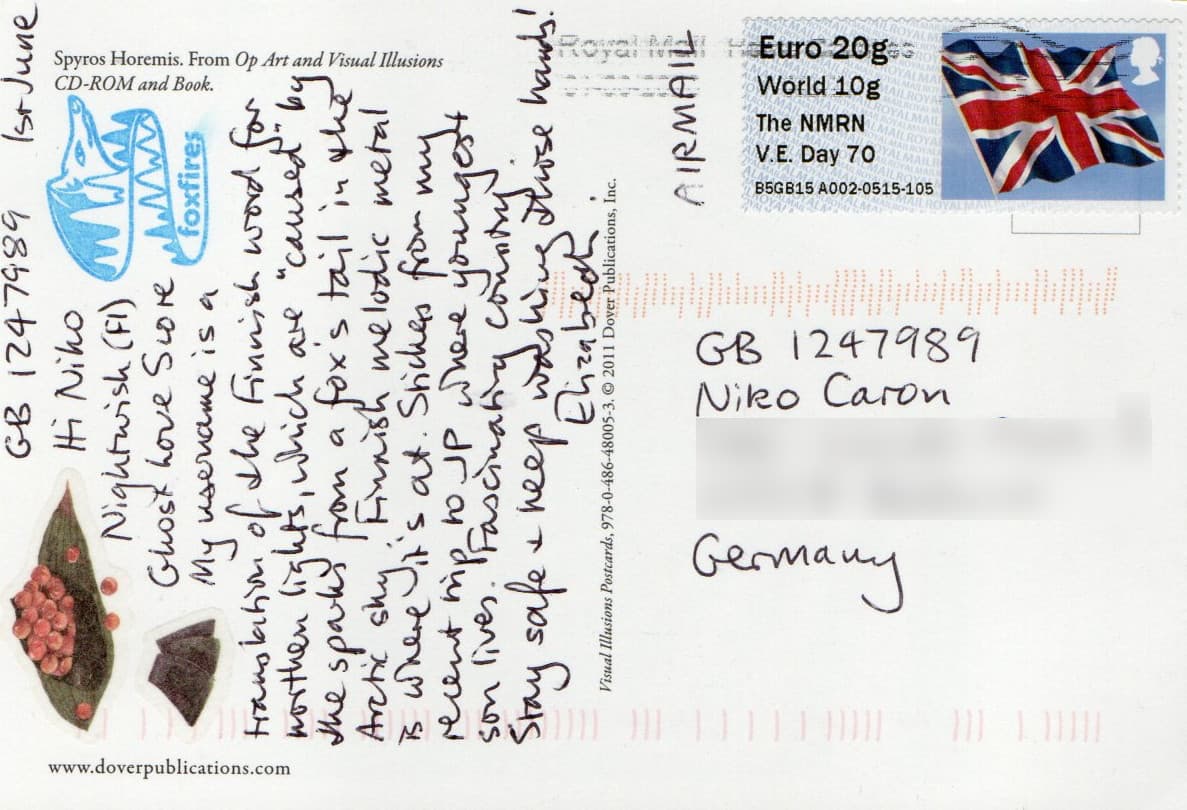 Spyros Horemis. From Op Art and Visual Illusions
CD-ROM and Book.
foxfires
GB 1247989 1st June
Hi Niko
Nightwish (FI)
Ghost Love Score
My username is a
translation of the Finnish word for
northern lights, which are "caused" by
the sparks from a fox's tail in the
Arctic sky. Finnish melodic metal
is where it's at. Stickers from my
recent trip to JP where youngest
son lives. Fascinating country.
Stay safe + keep washing those hands!
Elizabeth.
Visual Illusions Postcards, 978-0-486-48005-3. © 2011 Dover Publications, Inc.
www.doverpublications.com
Royal Mail
AIRMAIL
Euro 20g
World 10g
The NMRN
V.E. Day 70
B5GB15 A002-0515-105
GB 1247989
Niko Caron
Germany